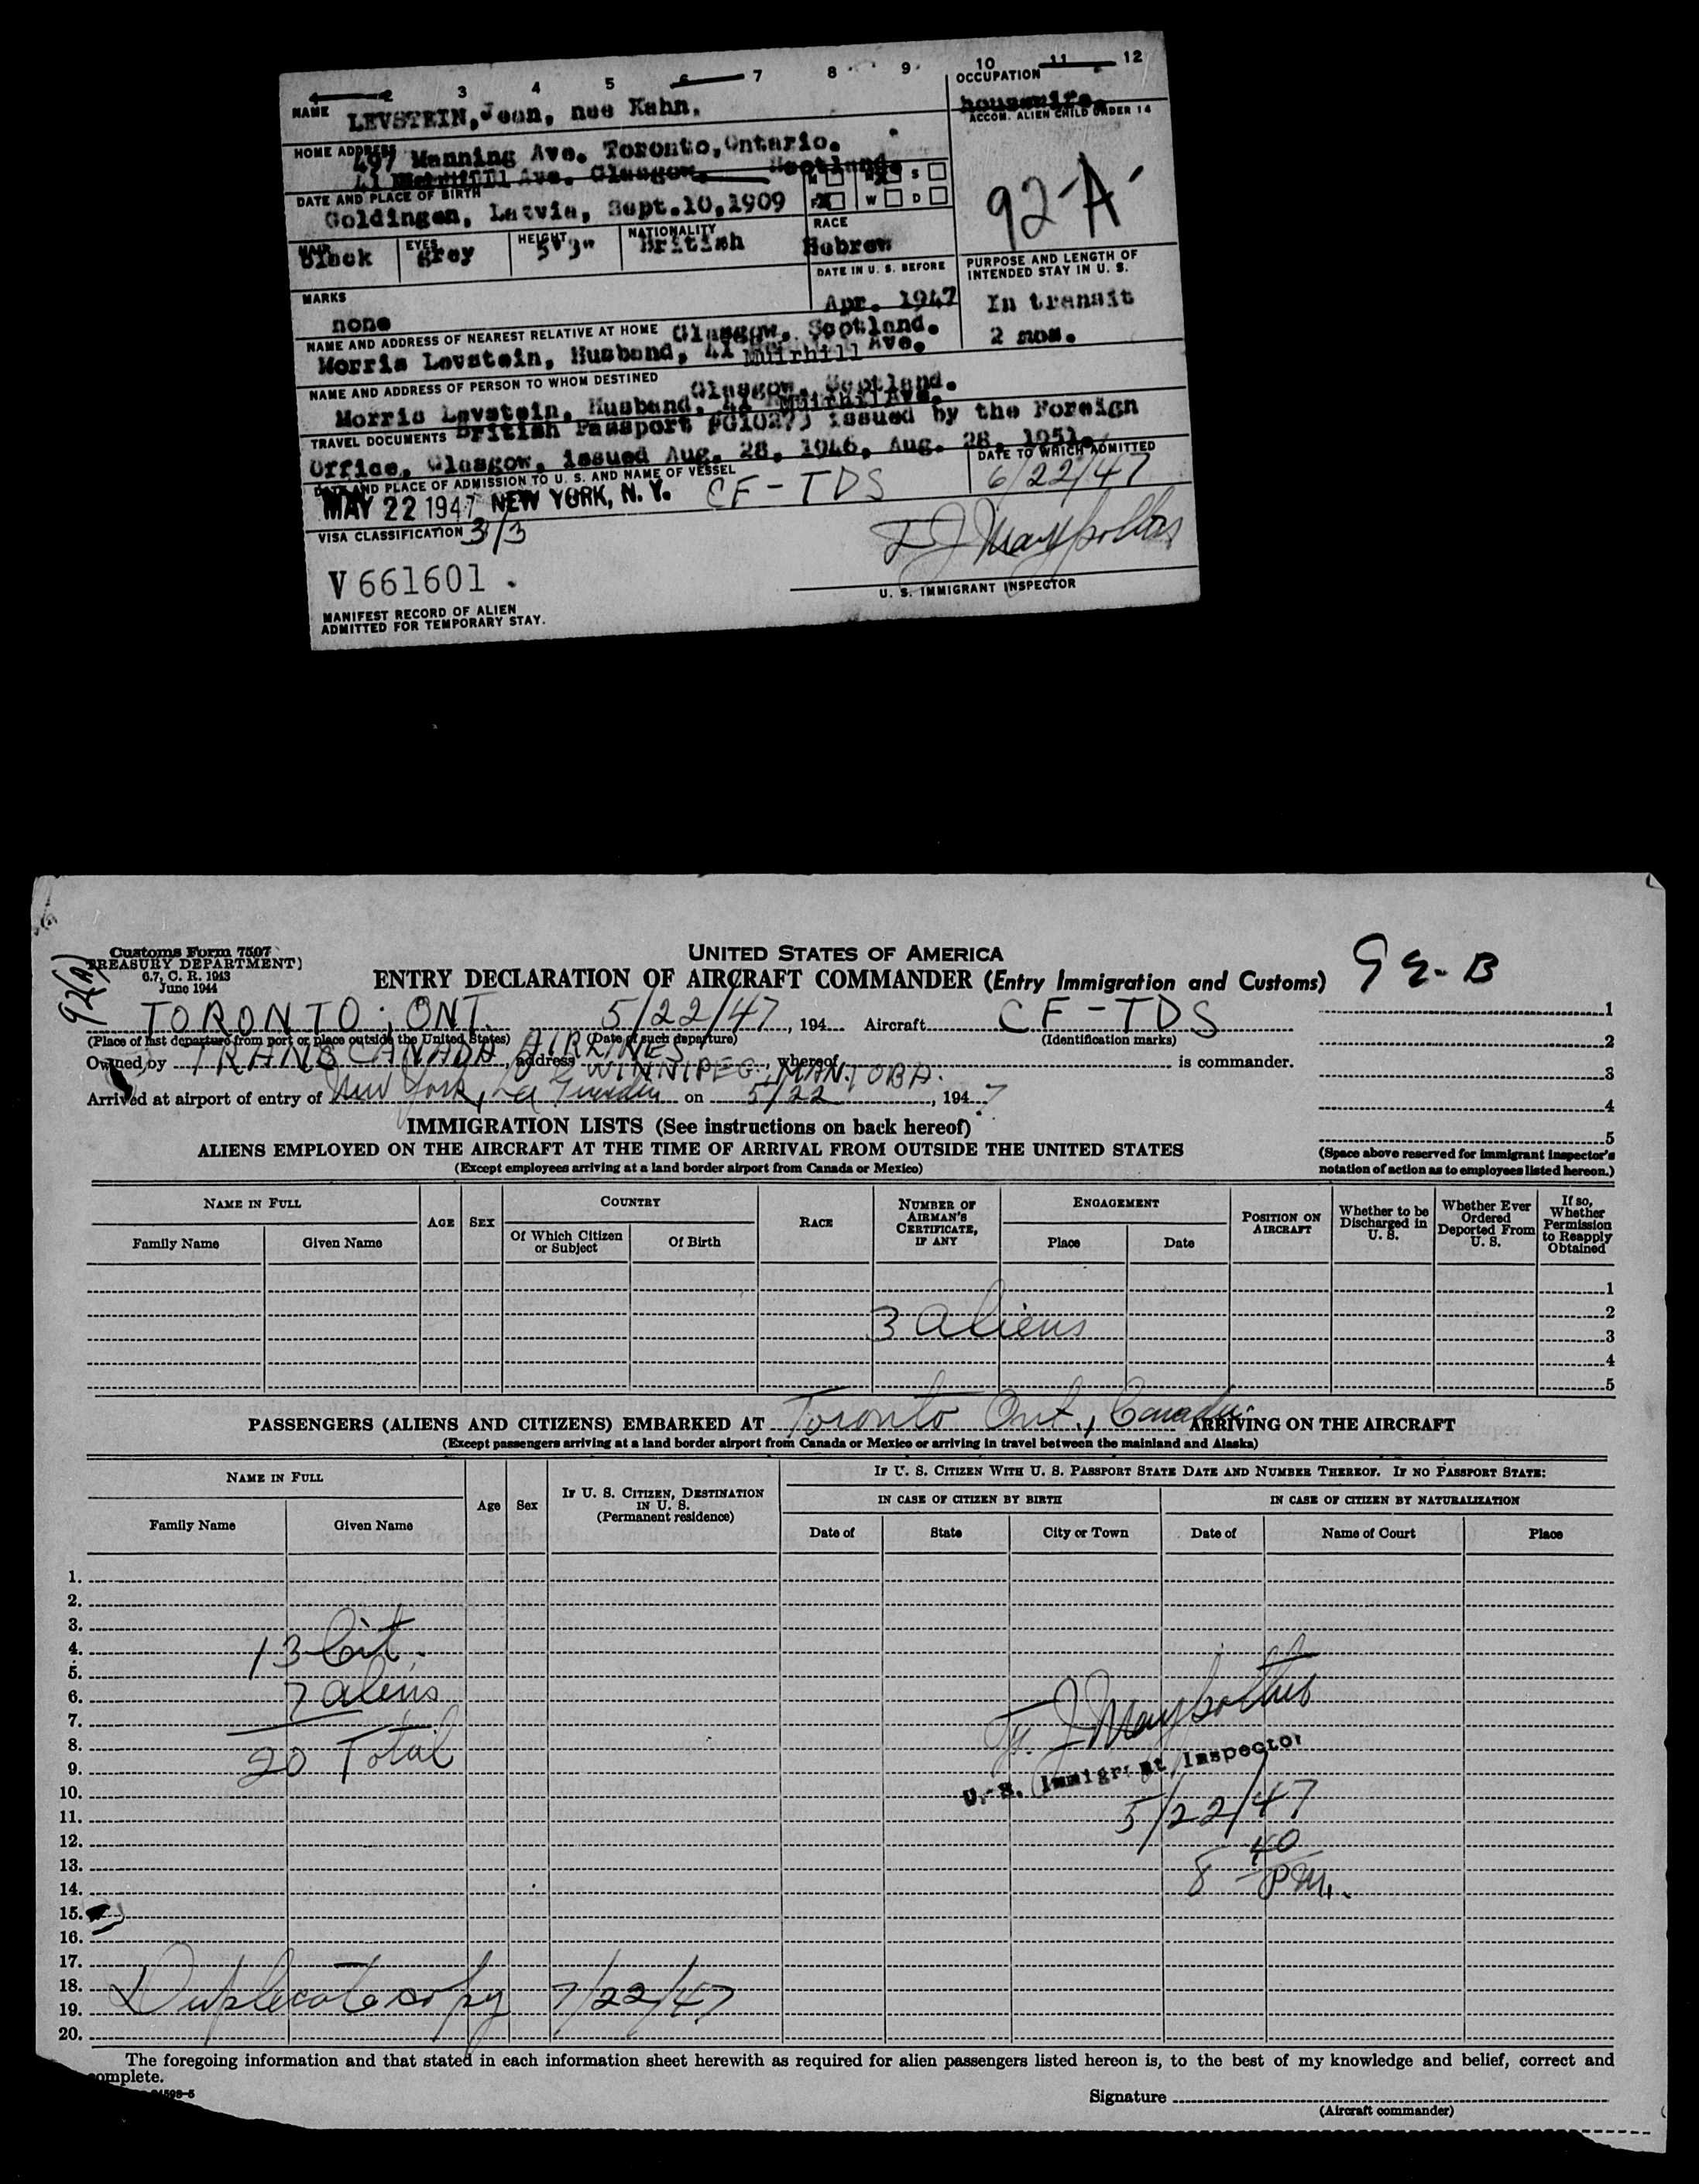 3 4 5 6 7 8 9 10 11 12
NAME LEVSTEIN, Jean, nee Kahn.
OCCUPATION housewife.
ACCOM. ALIEN CHILD UNDER 14
HOME ADDRESS 497 Manning Ave. Toronto, Ontario.
41 Ave. Glasgow, Scotland.
M S
F X W D
92-A
DATE AND PLACE OF BIRTH
Goldingen, Latvia, Sept.10,1909
HAIR black EYES grey HEIGHT 5'3" NATIONALITY British
RACE Hebrew
DATE IN U. S. BEFORE
Apr. 1947
PURPOSE AND LENGTH OF INTENDED STAY IN U. S.
In transit
2 mos.
MARKS
none
NAME AND ADDRESS OF NEAREST RELATIVE AT HOME Glasgow, Scotland.
Morris Levstein, Husband, 41 Muirhill Ave.
NAME AND ADDRESS OF PERSON TO WHOM DESTINED Glasgow, Scotland.
Morris Levstein, Husband, 41 Muirhill Ave.
TRAVEL DOCUMENTS British Passport issued by the Foreign
Office, Glasgow, issued Aug. 28, 1946, Aug. 28, 1951.
DATE AND PLACE OF ADMISSION TO U. S. AND NAME OF VESSEL
MAY 22 1947 NEW YORK, N. Y. CF-TDS
DATE TO WHICH ADMITTED
6/22/47
VISA CLASSIFICATION 3/3
V 661601
U. S. IMMIGRANT INSPECTOR
MANIFEST RECORD OF ALIEN
ADMITTED FOR TEMPORARY STAY.
92(A)
Customs Form 7507
TREASURY DEPARTMENT)
6.7, C. R. 1943
June 1944
UNITED STATES OF AMERICA
ENTRY DECLARATION OF AIRCRAFT COMMANDER (Entry Immigration and Customs)
92-B
TORONTO, ONT. 5/22/47, 194 Aircraft CF-TDS
(Place of last departure from port or place outside the United States) (Date of such departure) (Identification marks)
Owned by TRANS CANADA AIRLINES, address WINNIPEG, MANITOBA, whereof is commander.
Arrived at airport of entry of New York, La Guardia on 5/22, 1947
1
2
3
4
5
(Space above reserved for immigrant inspector's notation of action as to employees listed hereon.)
IMMIGRATION LISTS (See instructions on back hereof)
ALIENS EMPLOYED ON THE AIRCRAFT AT THE TIME OF ARRIVAL FROM OUTSIDE THE UNITED STATES
(Except employees arriving at a land border airport from Canada or Mexico)
NAME IN FULL
Family Name Given Name
AGE SEX
COUNTRY
Of Which Citizen or Subject Of Birth
RACE
NUMBER OF AIRMAN'S CERTIFICATE, IF ANY
ENGAGEMENT
Place Date
POSITION ON AIRCRAFT
Whether to be Discharged in U. S.
Whether Ever Ordered Deported From U. S.
If so, Whether Permission to Reapply Obtained
1
2
3 aliens
3
4
5
PASSENGERS (ALIENS AND CITIZENS) EMBARKED AT Toronto Ont., Canada ARRIVING ON THE AIRCRAFT
(Except passengers arriving at a land border airport from Canada or Mexico or arriving in travel between the mainland and Alaska)
NAME IN FULL
Family Name Given Name
Age Sex
IF U. S. CITIZEN, DESTINATION IN U. S. (Permanent residence)
IF U. S. CITIZEN WITH U. S. PASSPORT STATE DATE AND NUMBER THEREOF. IF NO PASSPORT STATE:
IN CASE OF CITIZEN BY BIRTH
Date of State City or Town
IN CASE OF CITIZEN BY NATURALIZATION
Date of Name of Court Place
1.
2.
3.
4. 13 Cit.
5.
6. 7 aliens
7.
8.
9. 20 Total
U. S. Immigrant Inspector
10.
11. 5/22/47
12.
13. 8 40 PM.
14.
15.
16.
17.
18. Duplicate copy 7/22/47
19.
20.
The foregoing information and that stated in each information sheet herewith as required for alien passengers listed hereon is, to the best of my knowledge and belief, correct and
complete.
Signature
(Aircraft commander)